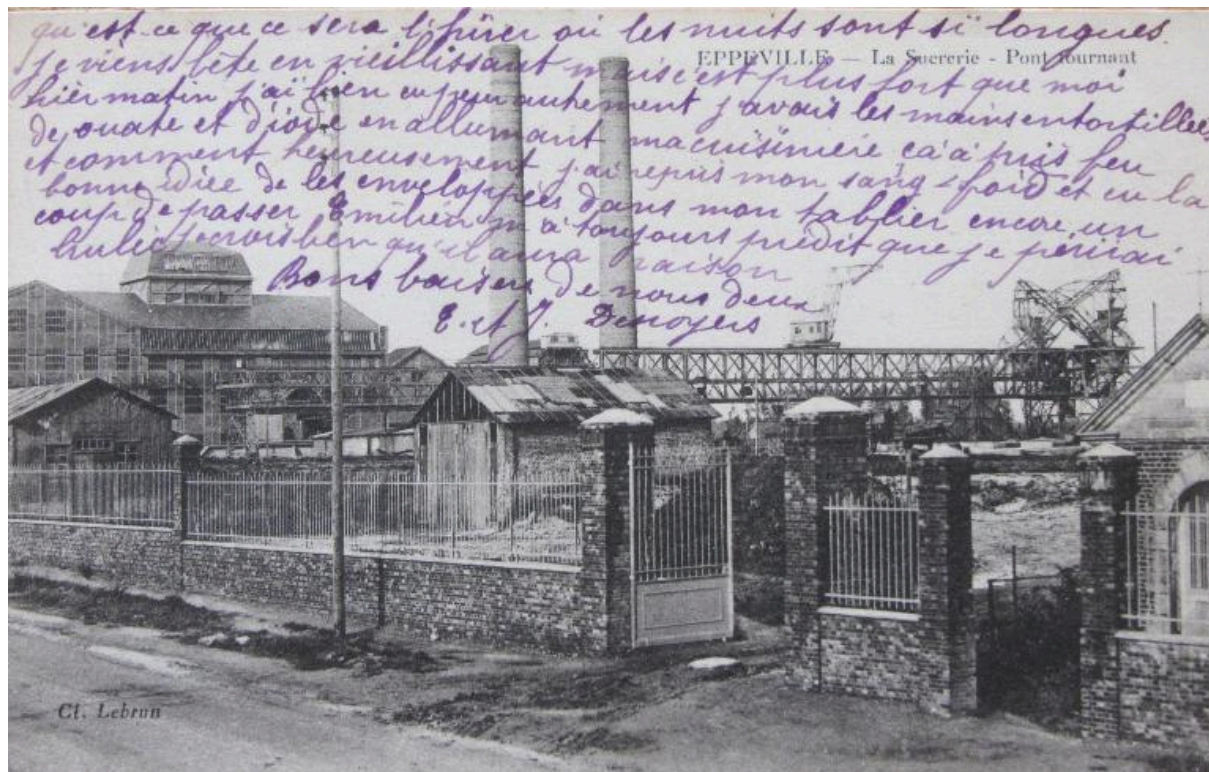 qu'est-ce que ce sera l'hiver où les nuits sont si longues.
EPPEVILLE — La Sucrerie - Pont tournant
je viens bête en vieillissant mais c'est plus fort que moi
hier matin j'ai bien eu peur autrement j'avais les mains entortillées
de ouate et d'iode en allumant ma cuisinière ca à pris feu
et comment heureusement j'ai repris mon sang-froid et eu la
bonne idée de les enveloppées dans mon tablier encore un
coup de passer Emilien m'à toujours prédit que je périrai
brulée je crois ben qu'il aura raison
Bons baisers de nous deux
E. et J. Denoyers
Cl. Lebrun